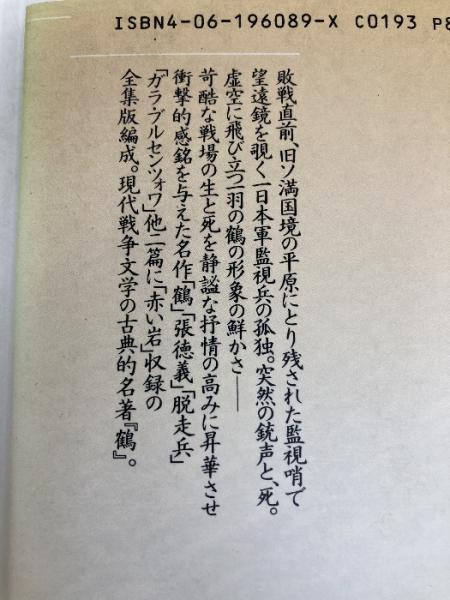 ISBN4-06-196089-X C0193 P8
敗戦直前、旧ソ満国境の平原にとり残された監視哨で
望遠鏡を覗く一日本軍監視兵の孤独。突然の銃声と、死。
虚空に飛び立つ一羽の鶴の形象の鮮かさ――
苛酷な戦場の生と死を静謐な抒情の高みに昇華させ
衝撃的感銘を与えた名作「鶴」「張徳義」「脱走兵」
「ガラ・ブルセンツォワ」他二篇に「赤い岩」収録の
全集版編成。現代戦争文学の古典的名著『鶴』。